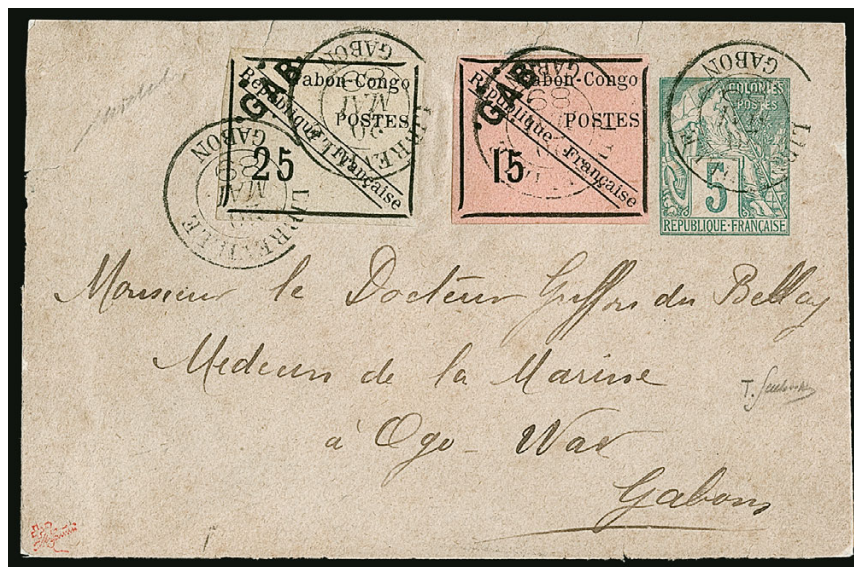 GABON
GAB
Gabon-Congo
POSTES
République Française
25
LIBREVILLE
GABON
MAI
89
GAB
Gabon-Congo
POSTES
République Française
15
GABON
89
GABON
COLONIES
POSTES
5
REPUBLIQUE-FRANÇAISE
Monsieur le Docteur Griffon du Bellay
Medecin de la Marine
à Ogo-Wae
Gabon